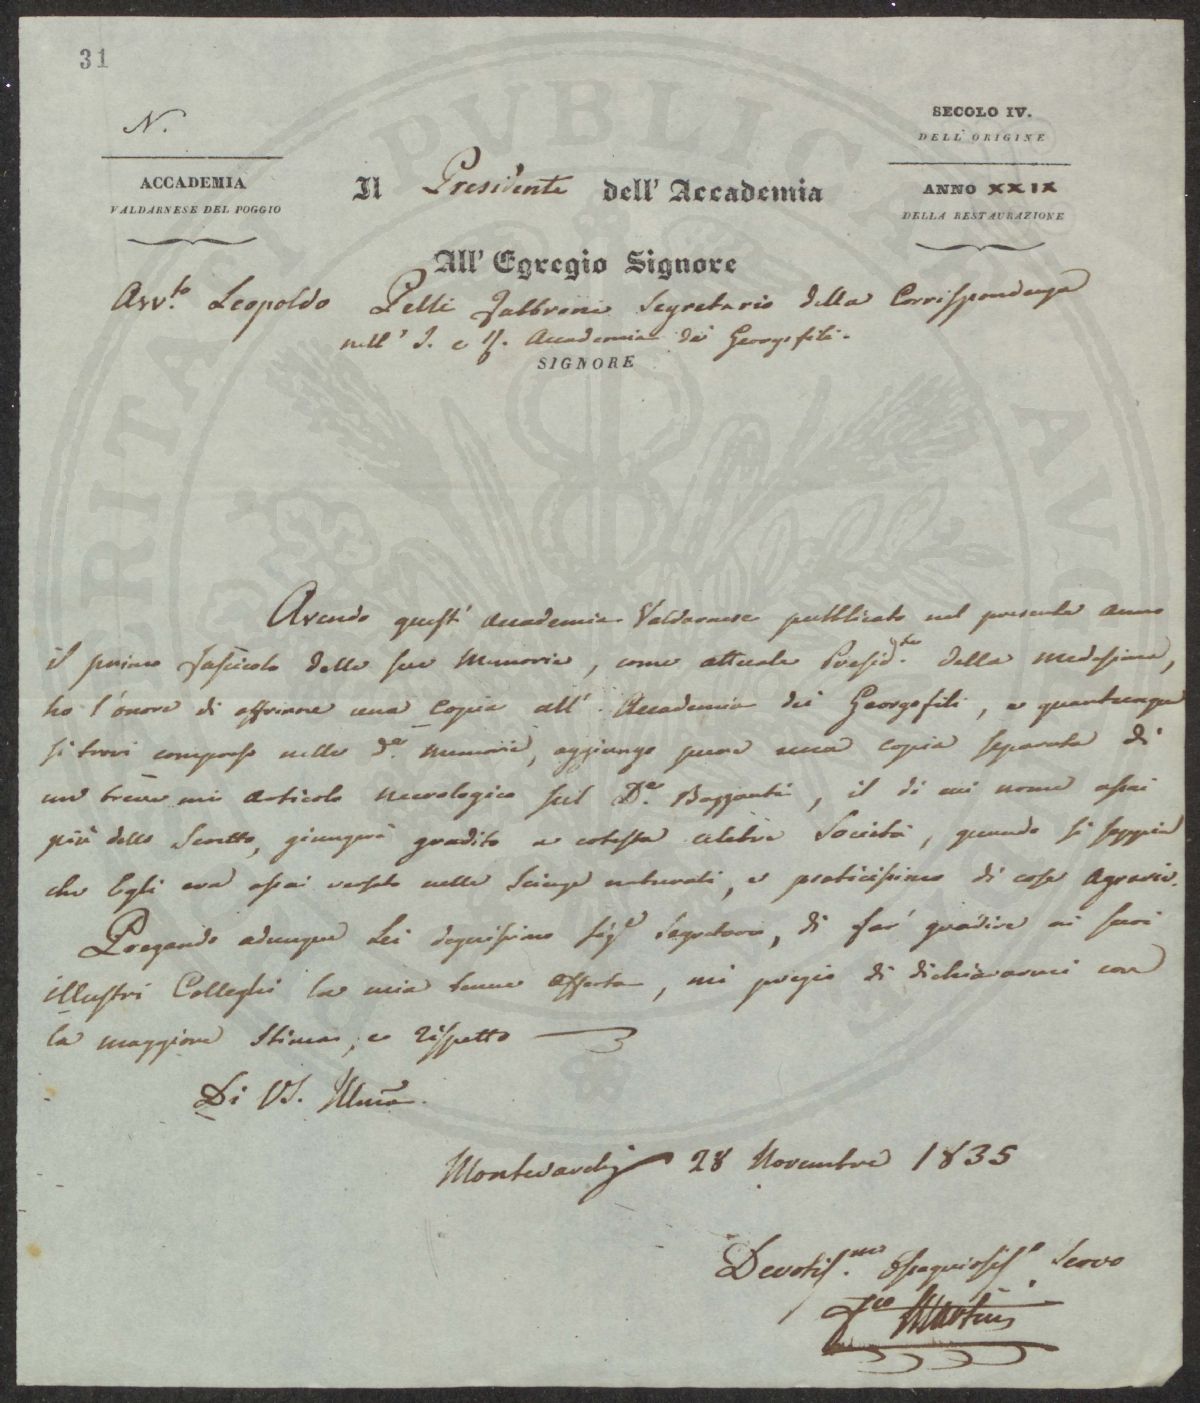 31
N.
ACCADEMIA
VALDARNESE DEL POGGIO
SECOLO IV.
DELL' ORIGINE
ANNO XXIX
DELLA RESTAURAZIONE
Il Presidente dell' Accademia
All' Egregio Signore
Avv.to Leopoldo Pelli Fabbroni Segretario della Corrispondenza
nell' I. e R. Accademia dei Georgofili.
SIGNORE
Avendo quest' Accademia Valdarnese pubblicato nel presente anno
il primo fascicolo delle sue Memorie, come attuale Presid.te della medesima,
ho l'onore di offrirne una Copia all' Accademia dei Georgofili, e quantunque
si trovi compreso nelle d.e Memorie, aggiungo pure una copia separata di
un breve mio articolo necrologico sul D.r Bazzanti, il di cui nome assai
più dello Scritto, giungerà gradito a cotesta celebre Società, quando si sappia
che Egli era assai versato nelle Scienze naturali, e praticissimo di cose Agrarie.
Pregando adunque Lei degnissimo Sig.e Segretario, di far gradire ai suoi
illustri Colleghi la mia tenue offerta, mi pregio di dichiararmi con
la maggiore Stima, e rispetto
Di VS. Illma
Montevarchi 28 Novembre 1835
Devotis.mo Ossequiosis.o Servo
Martini
PUBLICAE